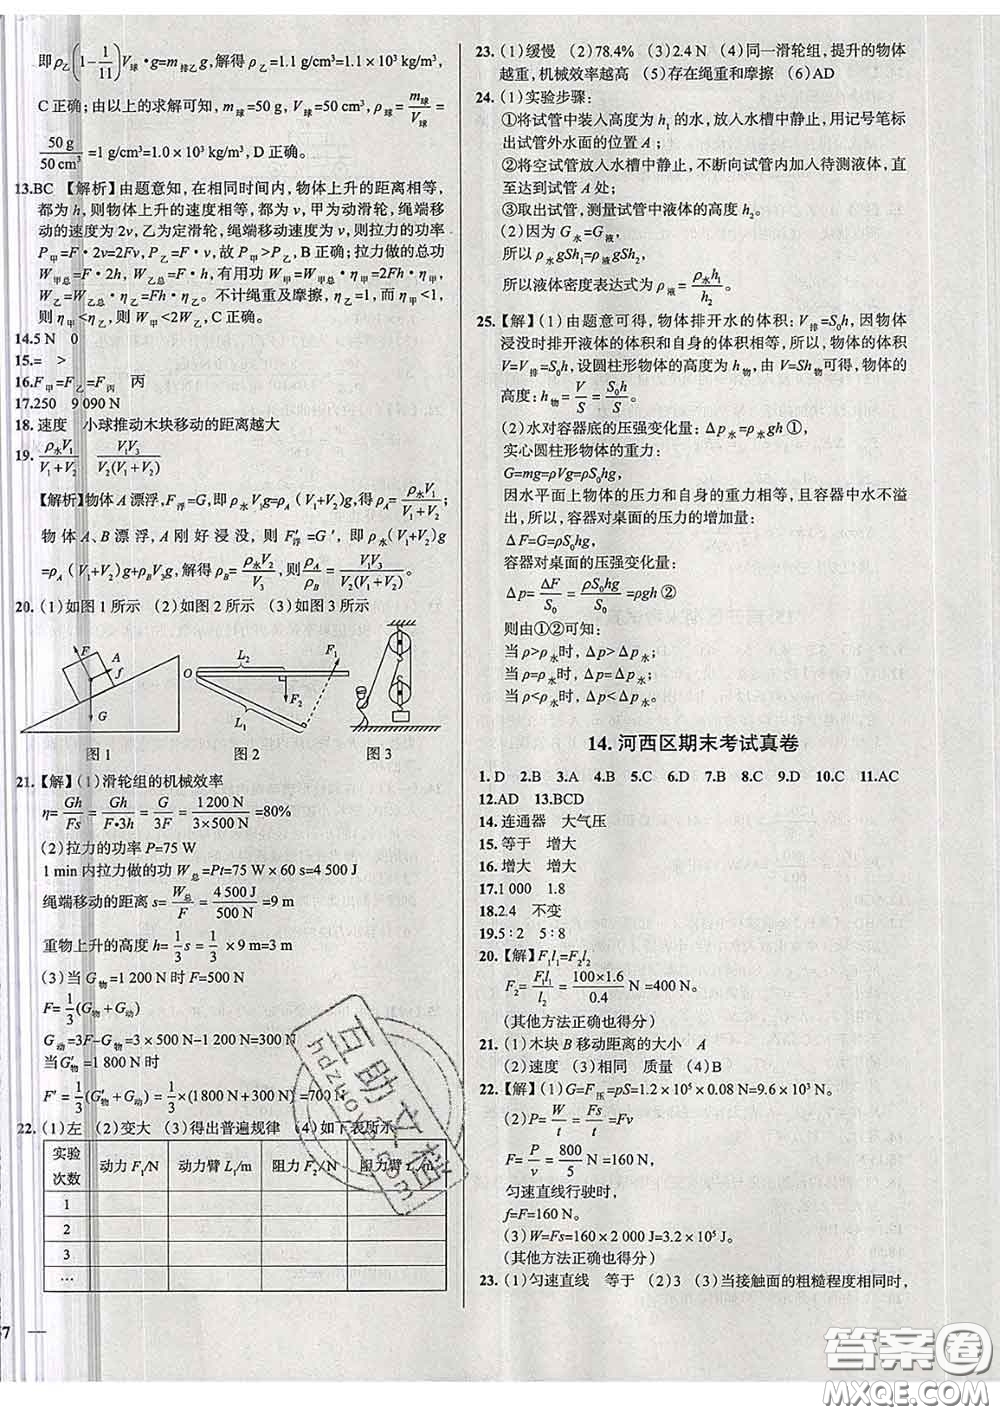 即ρ乙(1-1/11)V球·g=m排乙g, 解得ρ乙=1.1 g/cm³=1.1×10³ kg/m³,
C正确; 由以上的求解可知, m球=50 g, V球=50 cm³, ρ球=m球/V球=
50 g/50 cm³=1 g/cm³=1.0×10³ kg/m³, D正确。
13.BC 【解析】由题意知, 在相同时间内, 物体上升的距离相等,
都为h, 则物体上升的速度相等, 都为v, 甲为动滑轮, 绳端移
动的速度为2v, 乙为定滑轮, 绳端移动速度为v, 则拉力的功率
P甲=F·2v=2Fv, P乙=F·v, 故P甲>P乙, B正确; 拉力做的总功
W甲总=F·2h, W乙总=F·h, 有用功W甲=W甲总·η甲=2Fh·η甲,
W乙=W乙总·η乙=Fh·η乙。不计绳重及摩擦, η乙=1, 而η甲<1,
则η甲<η乙, 则W甲<2W乙, C正确。
14.5 N 0
15.= >
16.F甲=F乙=F丙 丙
17.250 9 090 N
18.速度 小球推动木块移动的距离越大
19.ρ水V1/(V1+V2) V1V3/(V2(V1+V2))
【解析】物体A漂浮, F浮=G, 即ρ水V1g=ρA(V1+V2)g, 得ρA=ρ水V1/(V1+V2);
物体A、B漂浮, A刚好浸没, 则F′浮=G′, 即ρ水(V1+V2)g
=ρA(V1+V2)g+ρBV3g, 解得ρB=ρ水V2/V3, 则ρA/ρB=V1V3/(V2(V1+V2))。
20.(1)如图1所示 (2)如图2所示 (3)如图3所示
F A f G
O L2 F1 F2 L1
图1 图2 图3
21.【解】(1)滑轮组的机械效率
η=Gh/Fs=Gh/(F·3h)=G/3F=1 200 N/(3×500 N)=80%
(2)拉力的功率P=75 W
1 min内拉力做的功W总=Pt=75 W×60 s=4 500 J
绳端移动的距离s=W总/F=4 500 J/500 N=9 m
重物上升的高度h=1/3s=1/3×9 m=3 m
(3)当G物=1 200 N时F=500 N
F=1/3(G物+G动)
G动=3F-G物=3×500 N-1 200 N=300 N
当G′物=1 800 N时
F′=1/3(G′物+G动)=1/3×(1 800 N+300 N)=700 N
22.(1)左 (2)变大 (3)得出普遍规律 (4)如下表所示
实验次数 动力F1/N 动力臂L1/m 阻力F2/N 阻力臂L2/m
1
2
3
…
23.(1)缓慢 (2)78.4% (3)2.4 N (4)同一滑轮组, 提升的物体
越重, 机械效率越高 (5)存在绳重和摩擦 (6)AD
24.(1)实验步骤:
①将试管中装入高度为h1的水, 放入水槽中静止, 用记号笔标
出试管外水面的位置A;
②将空试管放入水槽中静止, 不断向试管内加入待测液体, 直
至达到试管A处;
③取出试管, 测量试管中液体的高度h2。
(2)因为G水=G液,
所以ρ水gSh1=ρ液gSh2,
所以液体密度表达式为ρ液=ρ水h1/h2。
25.【解】(1)由题意可得, 物体排开水的体积: V排=S0h, 因物体
浸没时排开液体的体积和自身的体积相等, 所以, 物体的体积
V=V排=S0h, 设圆柱形物体的高度为h物, 由V=Sh物可得, 物体的
高度: h物=V/S=S0h/S。
(2)水对容器底的压强变化量: Δp水=ρ水gh①,
实心圆柱形物体的重力:
G=mg=ρVg=ρS0hg,
因水平面上物体的压力和自身的重力相等, 且容器中水不溢
出, 所以, 容器对桌面的压力的增加量:
ΔF=G=ρS0hg,
容器对桌面的压强变化量:
Δp=ΔF/S0=ρS0hg/S0=ρgh②
则由①②可知:
当ρ>ρ水时, Δp>Δp水;
当ρ=ρ水时, Δp=Δp水;
当ρ<ρ水时, Δp<Δp水。
14.河西区期末考试真卷
1.D 2.B 3.A 4.B 5.C 6.D 7.B 8.C 9.D 10.C 11.AC
12.AD 13.BCD
14.连通器 大气压
15.等于 增大
16.增大 增大
17.1 000 1.8
18.2.4 不变
19.5∶2 5∶8
20.【解】F1l1=F2l2
F2=F1l1/l2=100×1.6/0.4 N=400 N。
(其他方法正确也得分)
21.(1)木块B移动距离的大小 A
(2)速度 (3)相同 质量 (4)B
22.【解】(1)G=F压=pS=1.2×10⁵×0.08 N=9.6×10³ N。
(2)P=W/t=Fs/t=Fv
F=P/v=800/5 N=160 N,
匀速直线行驶时,
f=F=160 N。
(3)W=Fs=160×2 000 J=3.2×10⁵ J。
(其他方法正确也得分)
23.(1)匀速直线 等于 (2)3 (3)当接触面的粗糙程度相同时,
互助文档
答案圈
MXQE.COM